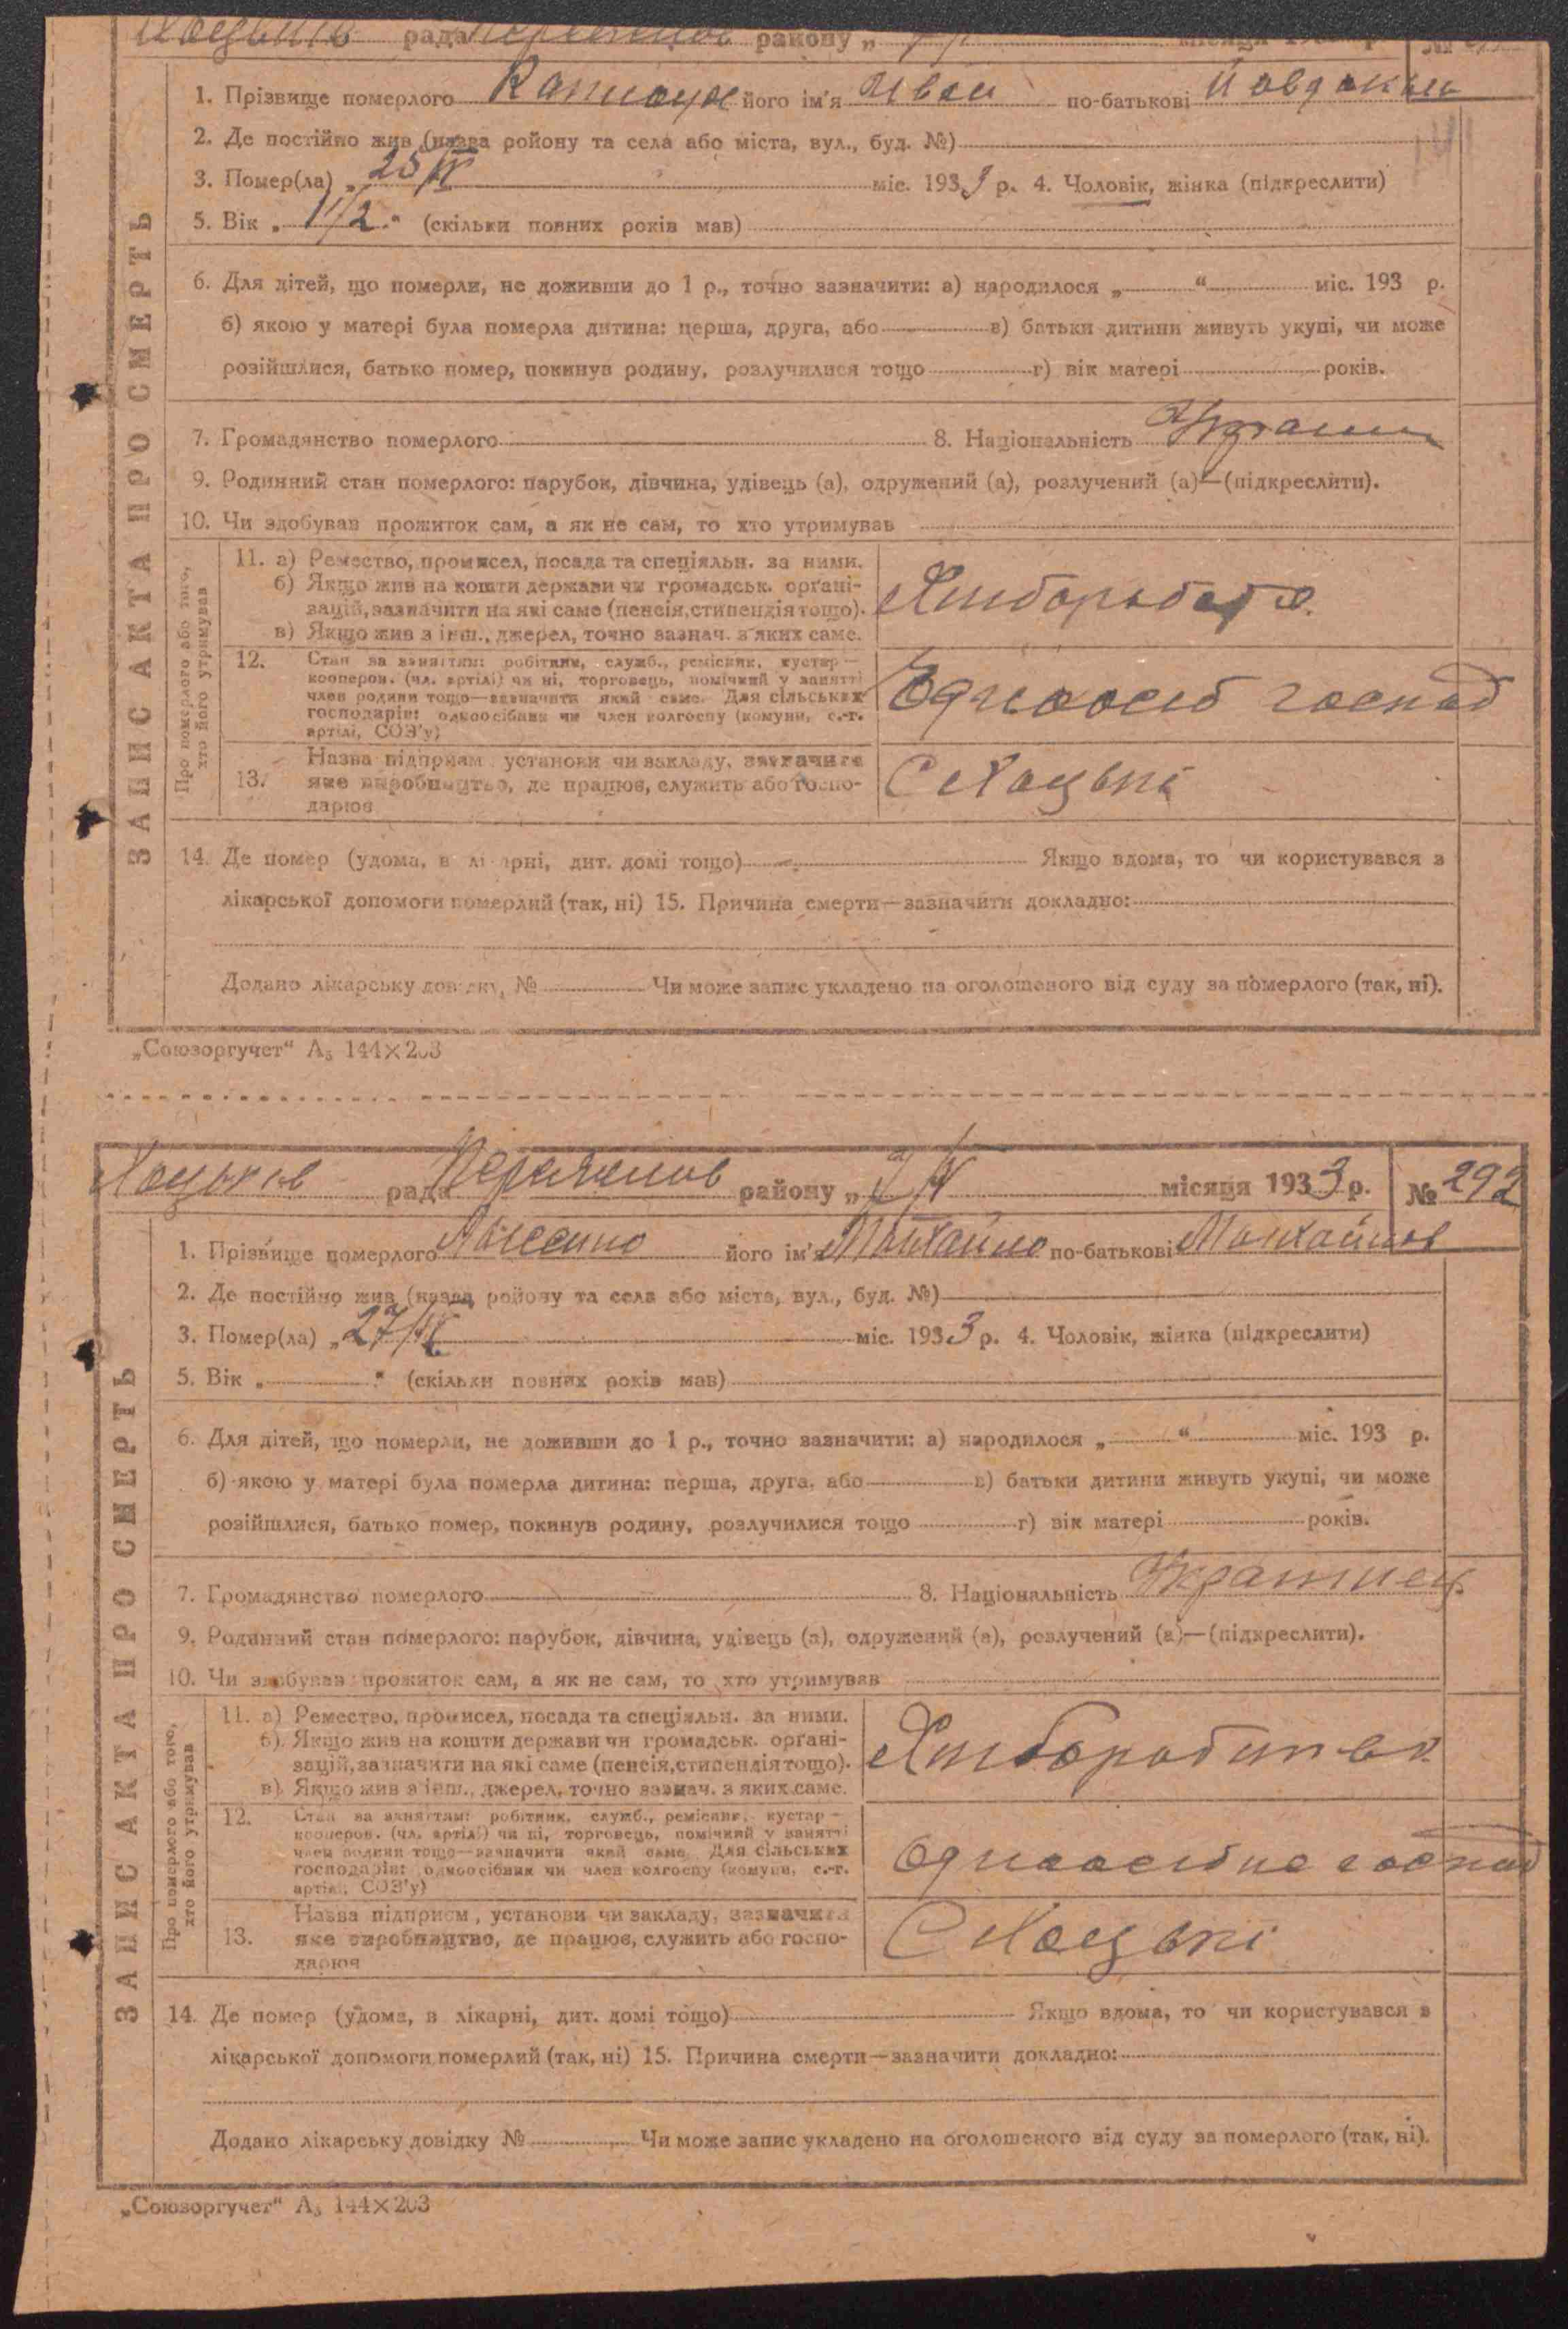 рада району „
1. Прізвище померлого його ім'я Иван по-батькові
2. Де постійно жив (назва ройону та села або міста, вул., буд. №)
3. Помер(ла) „ 25/IV міс. 1933 р. 4. Чоловік, жінка (підкреслити)
5. Вік „ 1 1/2 “ (скільки повних років мав)
6. Для дітей, що померли, не доживши до 1 р., точно зазначити: а) народилося „ “ міс. 193 р.
б) якою у матері була померла дитина: перша, друга, або в) батьки дитини живуть укупі, чи може
розійшлися, батько помер, покинув родину, розлучилися тощо г) вік матері років.
7. Громадянство померлого 8. Національність
9. Родинний стан померлого: парубок, дівчина, удівець (а), одружений (а), розлучений (а)—(підкреслити).
10. Чи здобував прожиток сам, а як не сам, то хто утримував
ЗАПИС АКТА ПРО СМЕРТЬ
Про померлого або того,
хто його утримував
11. а) Ремество, промисел, посада та спеціяльн. за ними.
б) Якщо жив на кошти держави чи громадськ. орґані-
зацій, зазначити на які саме (пенсія, стипендія тощо).
в) Якщо жив з інш., джерел, точно зазнач. з яких саме.
12. Стан за заняттям: робітник, служб., ремісник, кустар—
кооперов. (чл. артілі) чи ні, торговець, помічний у занятті
член родини тощо—зазначити який саме. Для сільських
господарів: одноосібник чи член колгоспу (комуни, с.-г.
артілі, СОЗ'у)
Одноосіб господ
13. Назва підприєм. установи чи закладу, зазначити
яке виробництво, де працює, служить або госпо-
дарює
С Хоцьки
14. Де помер (удома, в лікарні, дит. домі тощо) Якщо вдома, то чи користувався з
лікарської допомоги померлий (так, ні) 15. Причина смерти—зазначити докладно:
Додано лікарську довідку № Чи може запис укладено на оголошеного від суду за померлого (так, ні).
„Союзоргучет“ А₅ 144×203
Хоцьків рада району „ місяця 1933 р. № 292
1. Прізвище померлого його ім'я Михайло по-батькові Михайлов
2. Де постійно жив (назва ройону та села або міста, вул., буд. №)
3. Помер(ла) „ 27/IV міс. 1933 р. 4. Чоловік, жінка (підкреслити)
5. Вік „ “ (скільки повних років мав)
6. Для дітей, що померли, не доживши до 1 р., точно зазначити: а) народилося „ “ міс. 193 р.
б) якою у матері була померла дитина: перша, друга, або в) батьки дитини живуть укупі, чи може
розійшлися, батько помер, покинув родину, розлучилися тощо г) вік матері років.
7. Громадянство померлого 8. Національність Украинец
9. Родинний стан померлого: парубок, дівчина, удівець (а), одружений (а), розлучений (а)—(підкреслити).
10. Чи здобував прожиток сам, а як не сам, то хто утримував
ЗАПИС АКТА ПРО СМЕРТЬ
Про померлого або того,
хто його утримував
11. а) Ремество, промисел, посада та спеціяльн. за ними.
б) Якщо жив на кошти держави чи громадськ. орґані-
зацій, зазначити на які саме (пенсія, стипендія тощо).
в) Якщо жив з інш., джерел, точно зазнач. з яких саме.
12. Стан за заняттям: робітник, служб., ремісник, кустар—
кооперов. (чл. артілі) чи ні, торговець, помічний у занятті
член родини тощо—зазначити який саме. Для сільських
господарів: одноосібник чи член колгоспу (комуни, с.-г.
артілі, СОЗ'у)
Одноосібне господ
13. Назва підприєм, установи чи закладу, зазначити
яке виробництво, де працює, служить або госпо-
дарює
С Хоцьки
14. Де помер (удома, в лікарні, дит. домі тощо) Якщо вдома, то чи користувався з
лікарської допомоги померлий (так, ні) 15. Причина смерти—зазначити докладно:
Додано лікарську довідку № Чи може запис укладено на оголошеного від суду за померлого (так, ні).
„Союзоргучет“ А₅ 144×203